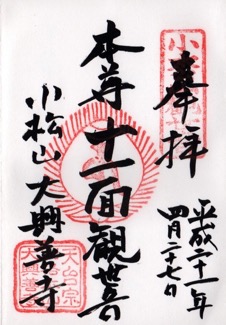 奉拝
平成二十一年
四月二十七日
本尊十一面観世音
小松山大興善寺
天台宗
大興善寺